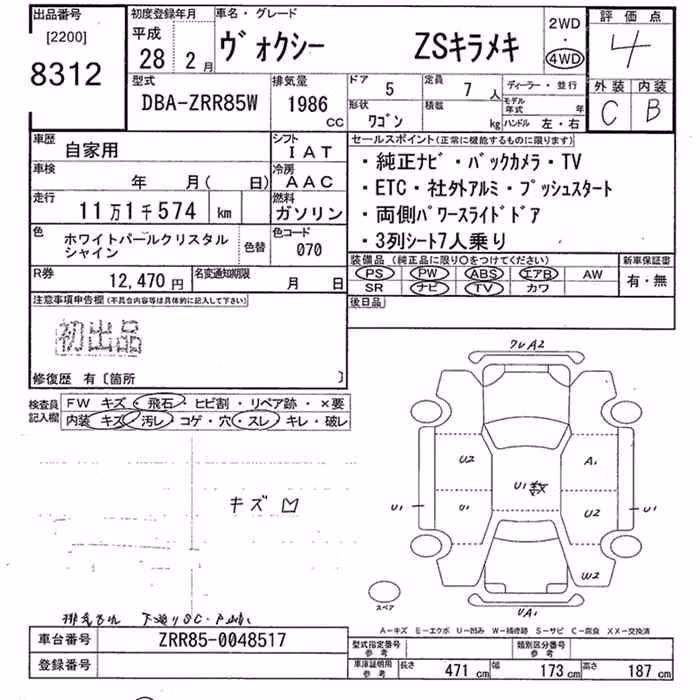 出品番号
[2200]
8312
初度登録年月
平成
28 2月
車名・グレード
ヴォクシー ZSキラメキ
2WD
・
4WD
評価点
4
外装 内装
C B
型式
DBA-ZRR85W
排気量
1986
CC
ドア
5
定員
7 人
形状
ワゴン
積載
kg
ディーラー・並行
モデル年式 年
ハンドル 左・右
車歴
自家用
シフト
IAT
車検
年 月( 日)
冷房
AAC
走行
11万1千574 km
燃料
ガソリン
色
ホワイトパールクリスタル
シャイン
色替
色コード
070
R券
12,470円
名変通知期限
月 日
セールスポイント(正常に機能するものに限ります)
・純正ナビ・バックカメラ・TV
・ETC・社外アルミ・プッシュスタート
・両側パワースライドドア
・3列シート7人乗り
装備品(純正品に限り○をつけてください)
PS PW ABS エアB AW
SR ナビ TV カワ
新車保証書
有・無
後日品
注意事項申告欄(不具合内容等は具体的に記入して下さい)
初出品
修復歴 有〔箇所 〕
検査員
記入欄
FW キズ・飛石・ヒビ割・リペア跡・×要
内装 キズ・汚レ・コゲ・穴・スレ・キレ・破レ
キズ
クレA2
U2
A1
U1数
U1
U1
U2
U1
W2
UA1
スペア
A-キズ E-エクボ U-凹み W-補修跡 S-サビ C-腐食 XX-交換済
車台番号
ZRR85-0048517
登録番号
型式指定番号
参考
類別区分番号
参考
車庫証明用
参考
長さ 471 cm 幅 173 cm 高さ 187 cm